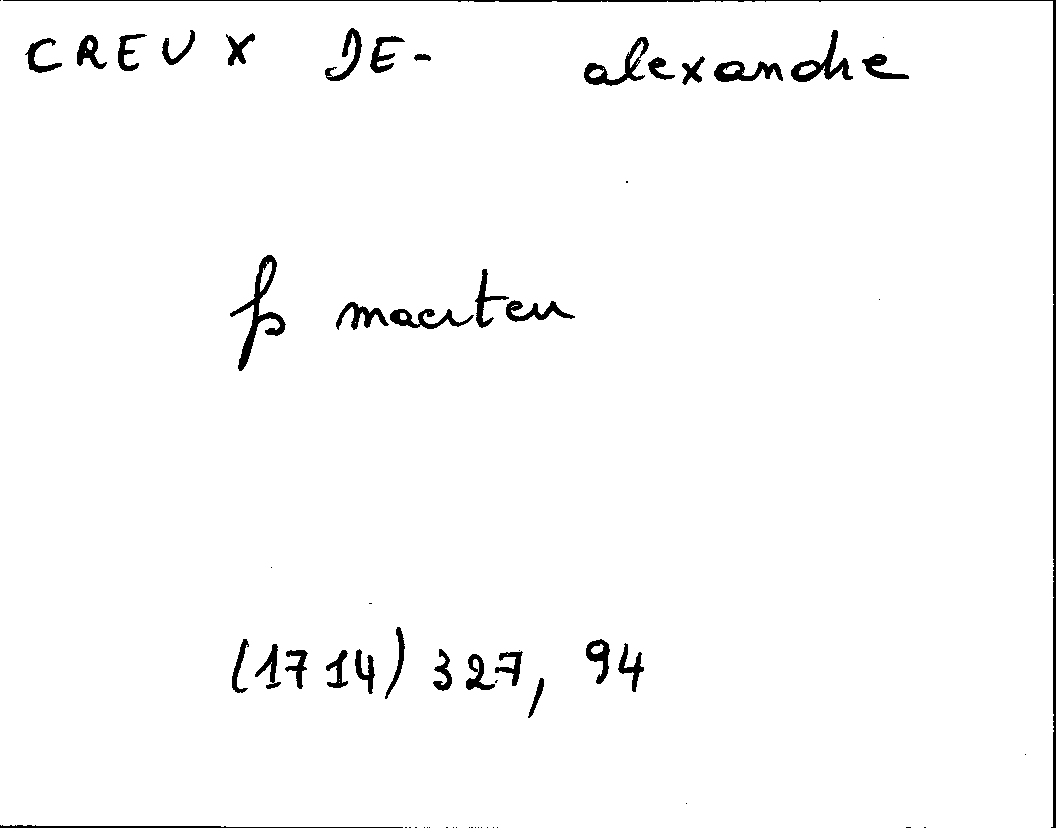 CREUX DE- alexandre
fs maerten
(1714) 327, 94